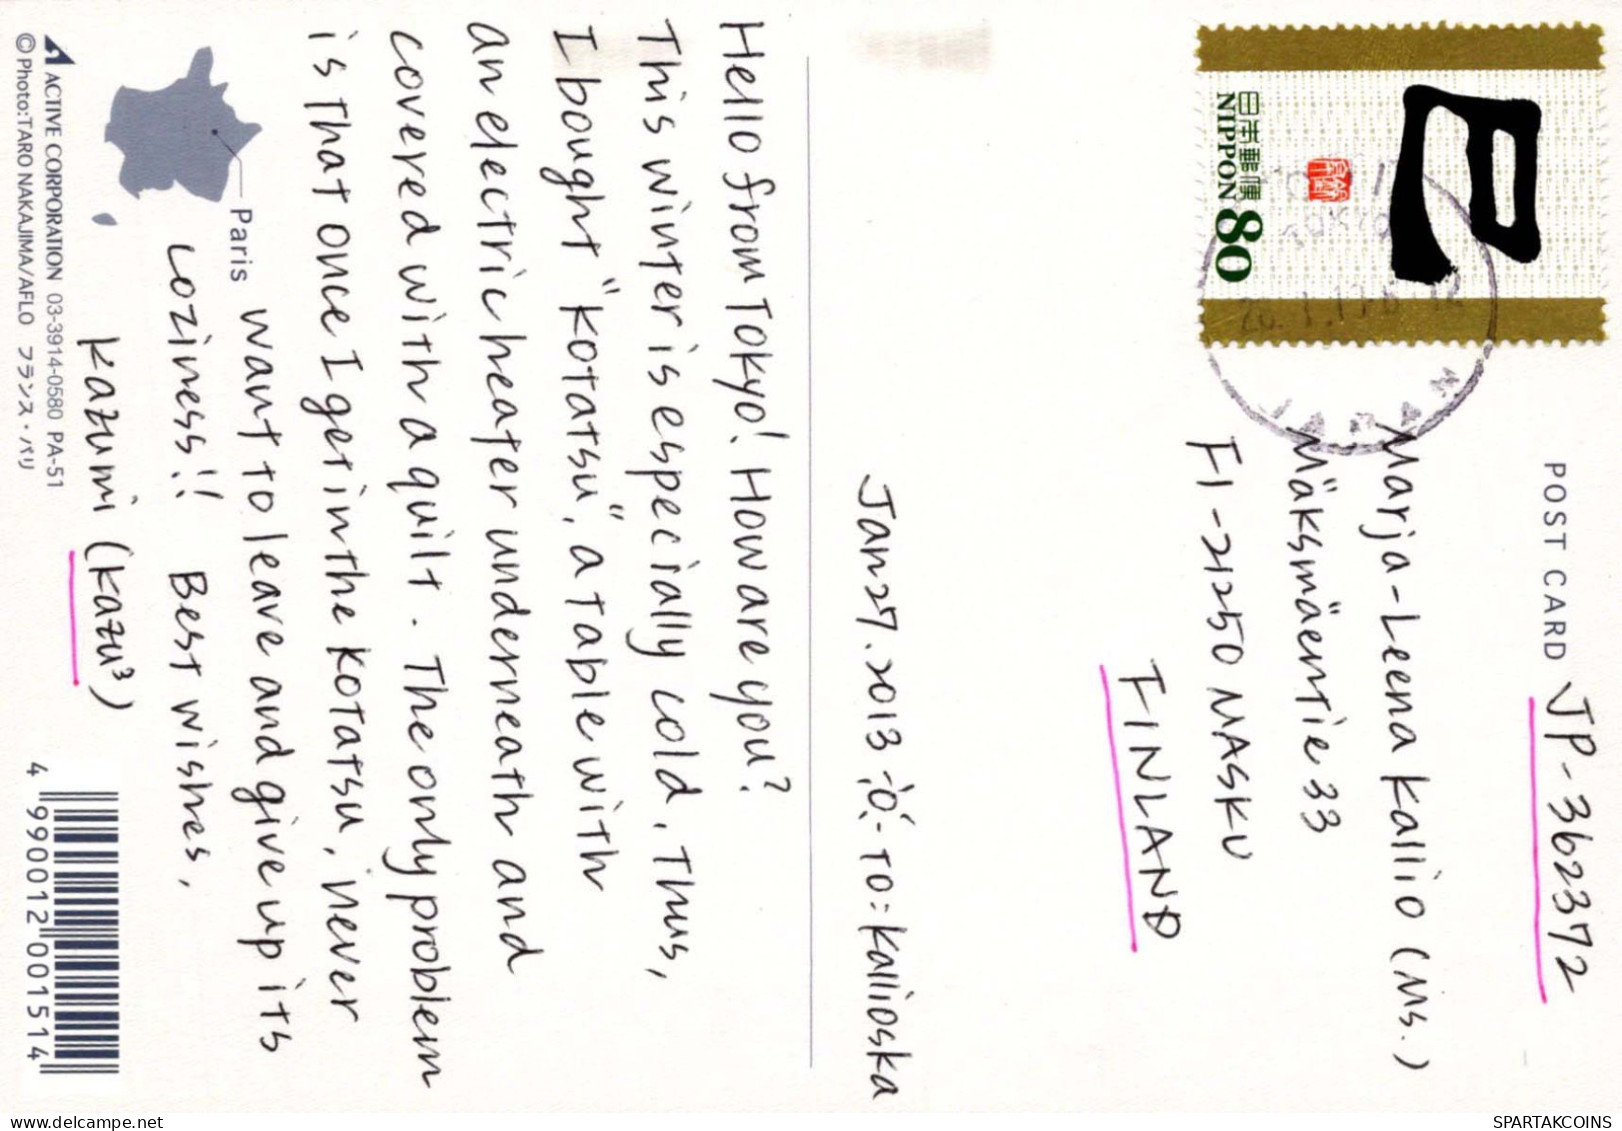 POST CARD JP-362372
日本郵便
NIPPON 80
巳
JAPAN
Marja-Leena Kallio (Ms.)
Mäksmäentie 33
FI-21250 MASKU
FINLAND
Jan 27. 2013 To: Kallioska
Hello from Tokyo! How are you?
This winter is especially cold. Thus,
I bought "kotatsu", a table with
an electric heater underneath and
covered with a quilt. The only problem
is that once I get in the kotatsu, never
want to leave and give up its
coziness!! Best wishes,
Kazumi (Kazu³)
Paris
ACTIVE CORPORATION 03-3914-0580 PA-51
©Photo:TARO NAKAJIMA/AFLO フランス・パリ
4 990012 001514
SPARTAKCOINS